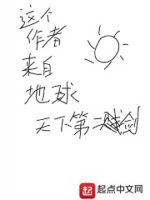 这个
作者
来自
地球
天下第二剑
起点
起点中文网